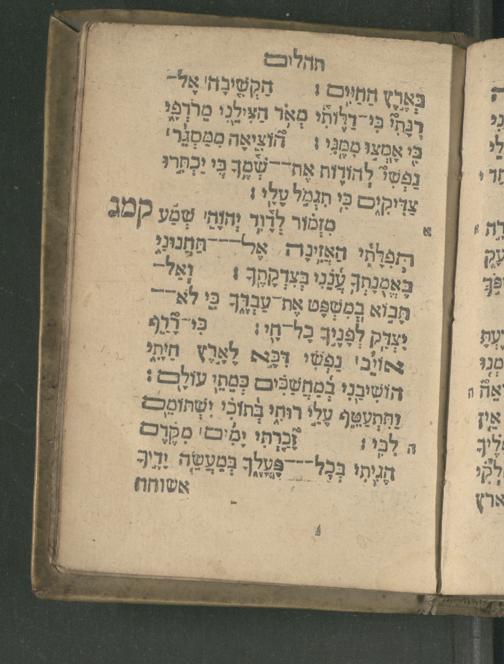 תהלים
בְּאֶרֶץ הַחַיִּים׃ הַקְשִׁיבָה אֶל־
רִנָּתִי כִּי־דַלּוֹתִי מְאֹד הַצִּילֵנִי מֵרֹדְפַי
כִּי אָמְצוּ מִמֶּנִּי׃ הוֹצִיאָה מִמַּסְגֵּר
נַפְשִׁי לְהוֹדוֹת אֶת־שְׁמֶךָ בִּי יַכְתִּרוּ
צַדִּיקִים כִּי תִגְמֹל עָלָי׃
קמג מִזְמוֹר לְדָוִד יְהוָה שְׁמַע א
תְּפִלָּתִי הַאֲזִינָה אֶל־תַּחֲנוּנַי
בֶּאֱמֻנָתְךָ עֲנֵנִי בְּצִדְקָתֶךָ׃ וְאַל־
תָּבוֹא בְמִשְׁפָּט אֶת־עַבְדֶּךָ כִּי לֹא־
יִצְדַּק לְפָנֶיךָ כָל־חָי׃ כִּי־רָדַף
אוֹיֵב נַפְשִׁי דִּכָּא לָאָרֶץ חַיָּתִי
הוֹשִׁיבַנִי בְמַחֲשַׁכִּים כְּמֵתֵי עוֹלָם׃
וַתִּתְעַטֵּף עָלַי רוּחִי בְּתוֹכִי יִשְׁתּוֹמֵם
ה לִבִּי׃ זָכַרְתִּי יָמִים מִקֶּדֶם
הָגִיתִי בְכָל־פָּעֳלֶךָ בְּמַעֲשֵׂה יָדֶיךָ
אשוחח